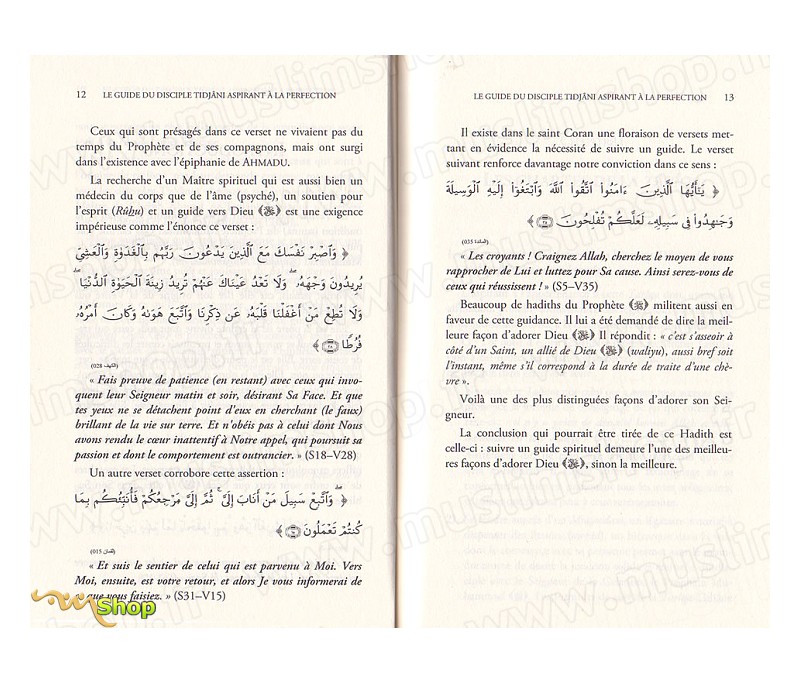 12 LE GUIDE DU DISCIPLE TIDJÂNI ASPIRANT À LA PERFECTION
Ceux qui sont présagés dans ce verset ne vivaient pas du
temps du Prophète et de ses compagnons, mais ont surgi
dans l'existence avec l'épiphanie de AHMADU.
La recherche d'un Maître spirituel qui est aussi bien un
médecin du corps que de l'âme (psyché), un soutien pour
l'esprit (Rûhu) et un guide vers Dieu (ﷻ) est une exigence
impérieuse comme l'énonce ce verset :
﴿ وَٱصْبِرْ نَفْسَكَ مَعَ ٱلَّذِينَ يَدْعُونَ رَبَّهُم بِٱلْغَدَوٰةِ وَٱلْعَشِىِّ
يُرِيدُونَ وَجْهَهُۥ ۖ وَلَا تَعْدُ عَيْنَاكَ عَنْهُمْ تُرِيدُ زِينَةَ ٱلْحَيَوٰةِ ٱلدُّنْيَا ۖ
وَلَا تُطِعْ مَنْ أَغْفَلْنَا قَلْبَهُۥ عَن ذِكْرِنَا وَٱتَّبَعَ هَوَىٰهُ وَكَانَ أَمْرُهُۥ
فُرُطًا ٢٨ ﴾
(الكهف 028)
« Fais preuve de patience (en restant) avec ceux qui invo-
quent leur Seigneur matin et soir, désirant Sa Face. Et que
tes yeux ne se détachent point d'eux en cherchant (le faux)
brillant de la vie sur terre. Et n'obéis pas à celui dont Nous
avons rendu le cœur inattentif à Notre appel, qui poursuit sa
passion et dont le comportement est outrancier. » (S18–V28)
Un autre verset corrobore cette assertion :
﴿ وَٱتَّبِعْ سَبِيلَ مَنْ أَنَابَ إِلَىَّ ۚ ثُمَّ إِلَىَّ مَرْجِعُكُمْ فَأُنَبِّئُكُم بِمَا
كُنتُمْ تَعْمَلُونَ ١٥ ﴾
(لقمان 015)
« Et suis le sentier de celui qui est parvenu à Moi. Vers
Moi, ensuite, est votre retour, et alors Je vous informerai de
que vous faisiez. » (S31–V15)
LE GUIDE DU DISCIPLE TIDJÂNI ASPIRANT À LA PERFECTION 13
Il existe dans le saint Coran une floraison de versets met-
tant en évidence la nécessité de suivre un guide. Le verset
suivant renforce davantage notre conviction dans ce sens :
﴿ يَٰٓأَيُّهَا ٱلَّذِينَ ءَامَنُوا۟ ٱتَّقُوا۟ ٱللَّهَ وَٱبْتَغُوٓا۟ إِلَيْهِ ٱلْوَسِيلَةَ
وَجَٰهِدُوا۟ فِى سَبِيلِهِۦ لَعَلَّكُمْ تُفْلِحُونَ ٣٥ ﴾
(المائدة 035)
« Les croyants ! Craignez Allah, cherchez le moyen de vous
rapprocher de Lui et luttez pour Sa cause. Ainsi serez-vous de
ceux qui réussissent ! » (S5–V35)
Beaucoup de hadiths du Prophète (ﷺ) militent aussi en
faveur de cette guidance. Il lui a été demandé de dire la meil-
leure façon d'adorer Dieu (ﷻ) Il répondit : « c'est s'asseoir à
côté d'un Saint, un allié de Dieu (ﷻ) (waliyu), aussi bref soit
l'instant, même s'il correspond à la durée de traite d'une chè-
vre ».
Voilà une des plus distinguées façons d'adorer son Sei-
gneur.
La conclusion qui pourrait être tirée de ce Hadith est
celle-ci : suivre un guide spirituel demeure l'une des meilleu-
res façons d'adorer Dieu (ﷻ), sinon la meilleure.
www.muslimshop.fr
shop